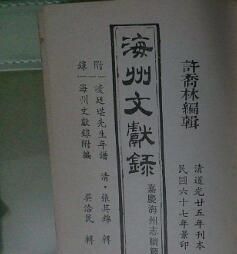 許喬林編輯
清道光廿五年刊本
民國六十七年景印
海州文獻錄
嘉慶海州志
附錄
凌廷堪先生年譜 清・張其錦 輯
海州文獻錄附編 吳浩民 輯